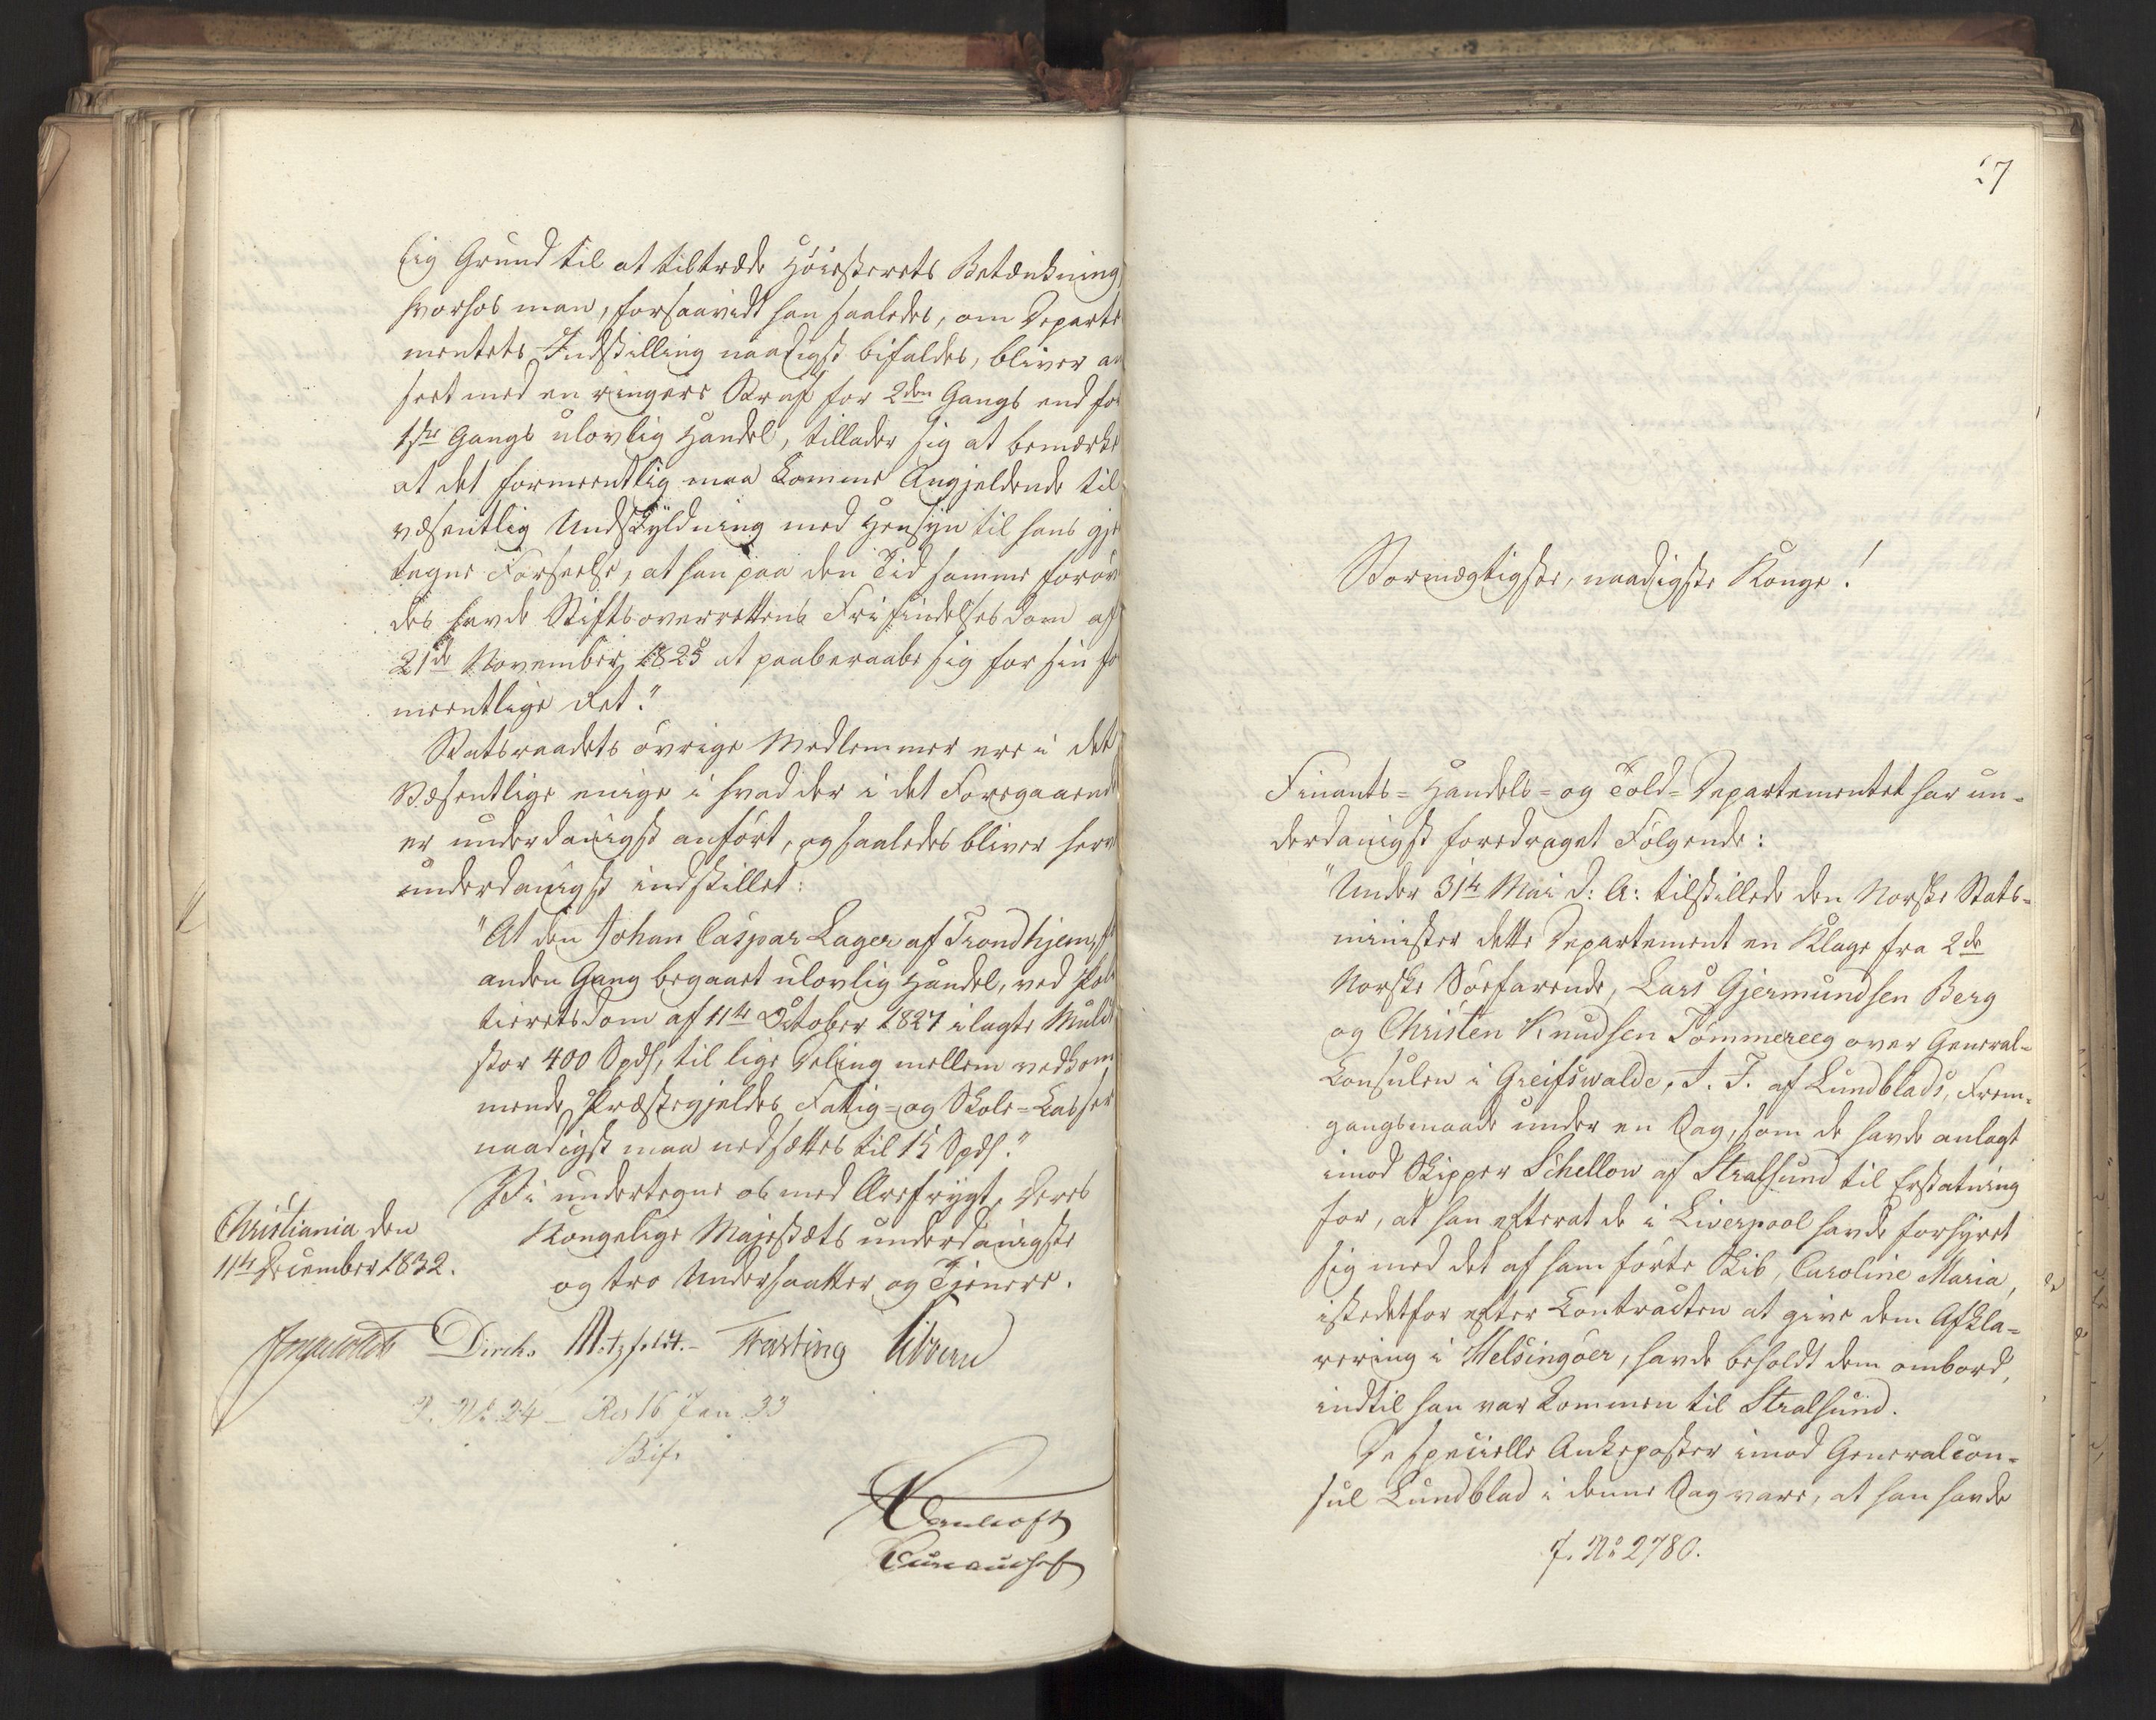 lig Grund til at tiltræde Höiesterets Betænkning,
hvorhos man, forsaavidt han saaledes, om Departe
mentets Indstilling naadigst bifaldes, bliver an
seet med en ringere Straf for 2den Gangs end for
1ste Gangs ulovlig Handel, tillader sig at bemærke
at det formeentlig maa komme Angjeldende til
væsentlig Undskyldning med Hensyn til hans gjen
tagne Forseelse, at han paa den Tid samme foröve
des havde Stiftsoverrettens Frifindelsesdom af
21de November 1825 at paaberaabe sig for sin for
meentlige Ret."
Statsraadets övrige Medlemmer ere i det
Væsentlige enige i hvad der i det Foregaaende
er underdanigst anfört, og saaledes bliver herved
underdanigst indstillet:
"At den Johan Caspar Lager af Trondhjem, for
anden Gang begaaet ulovlig Handel, ved Poli
tieretsdom af 11te October 1827 ilagte Mulct
stor 400 Spds, til lige Deling mellem vedkom
mende Præstegjeldes Fattig- og Skole-Casser
naadigst maa nedsættes til 15 Spds."
Vi undertegne os med Ærefrygt, Deres
Kongelige Majestæts underdanigste
og tro Undersaatter og Tjenere.
Christiania den
11te December 1832.
Diriks Motzfeldt Fasting Vibe
J. No 24 - Res 16 Jan 33
Bif.
27
Stormægtigste, naadigste Konge!
Finants- Handels- og Told-Departementet har un-
derdanigst foredraget Fölgende:
"Under 31te Mai d: A: tilstillede den Norske Stats-
minister dette Departement en Klage fra 2de
Norske Söefarende, Lars Gjermundsen Berg
og Christen Knudsen Tömmereeg over General-
Consulen i Greifswalde, J. F. af Lundblads, Frem-
gangsmaade under en Sag, som de havde anlagt
imod Skipper Schellow af Stralsund til Erstatning
for, at han efterat de i Liverpool havde forhyret
sig med det af ham förte Skib, Caroline Maria,
istedetfor efter Contracten at give dem Afkla-
rering i Helsingöer, havde beholdt dem ombord,
indtil han var kommen til Stralsund.
De specielle Ankeposter imod Generalcon-
sul Lundblad i denne Sag vare, at han havde
J. No 2780.